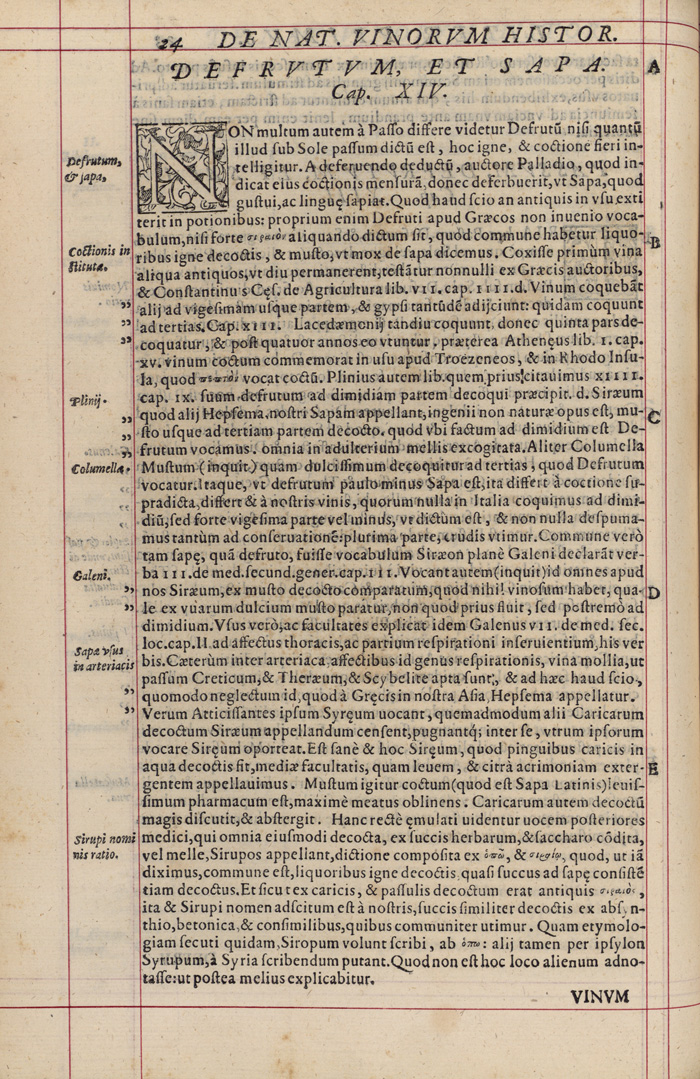 24 DE NAT. VINORVM HISTOR.
DEFRVTVM, ET SAPA.
Cap. XIV.
A
Defrutum,
& sapa,
NON multum autem à Passo differe videtur Defrutũ nisi quantũ
illud sub Sole passum dictũ est, hoc igne, & coctione fieri in-
telligitur. A deferuendo deductũ, auctore Palladio, quod in-
dicat eius coctionis mensurã, donec deferbuerit, vt Sapa, quod
gustui, ac linguę sapiat. Quod haud scio an antiquis in vsu exti
terit in potionibus: proprium enim Defruti apud Græcos non inuenio voca-
bulum, nisi forte σιραιὸς aliquando dictum sit, quod commune habetur liquo-
B
Coctionis in
stitutæ.
ribus igne decoctis, & musto, vt mox de sapa dicemus. Coxisse primùm vina
aliqua antiquos, vt diu permanerent, testãtur nonnulli ex Græcis auctoribus,
& Constantinus Cęs. de Agricultura lib. VII. cap. IIII. d. Vinum coquebãt
,, alij ad vigesimam usque partem, & gypsi tantũdẽ adijciunt: quidam coquunt
,, ad tertias. Cap. XIII. Lacedæmonij tandiu coquunt, donec quinta pars de-
,, coquatur, & post quatuor annos eo vtuntur. præterea Athenęus lib. I. cap.
xv. vinum coctum commemorat in usu apud Troezeneos, & in Rhodo Insu-
la, quod vocat coctũ. Plinius autem lib. quem prius citauimus XIIII.
Plinij.
cap. IX. suum defrutum ad dimidiam partem decoqui præcipit. d. Siræum
,, quod alij Hepsema, nostri Sapam appellant, ingenii non naturæ opus est, mu-
C
,, sto usque ad tertiam partem decocto. quod vbi factum ad dimidium est De-
,, frutum vocamus. omnia in adulterium mellis excogitata. Aliter Columella
Columella.
Mustum (inquit) quàm dulcissimum decoquitur ad tertias, quod Defrutum
vocatur. Itaque, vt defrutum paulo minus Sapa est, ita differt à coctione su-
pradicta, differt & à nostris vinis, quorum nulla in Italia coquimus ad dimi-
diũ, sed forte vigesima parte vel minus, vt dictum est, & non nulla despuma-
mus tantùm ad conseruationẽ: plurima parte, crudis vtimur. Commune verò
tam sapę, quã defruto, fuisse vocabulum Siræon planè Galeni declarãt ver-
Galeni.
ba III. de med. secund. gener. cap. III. Vocant autem (inquit) id omnes apud
,, nos Siræum, ex musto decocto comparatum, quod nihil vinosum habet, qua-
D
,, le ex vuarum dulcium musto paratur, non quod prius fiuit, sed postremò ad
dimidium. Vsus verò, ac facultates explicat idem Galenus VII. de med. sec.
loc. cap. II. ad affectus thoracis, ac partium respirationi inseruientium, his ver
Sapæ vsus
in arteriacis
bis. Cæterùm inter arteriaca affectibus id genus respirationis, vina mollia, ut
passum Creticum, & Theræum, & Scybelite apta sunt, & ad hæc haud scio,
,, quomodo neglectum id, quod à Gręcis in nostra Asia, Hepsema appellatur.
,, Verum Atticissantes ipsum Syręum uocant, quemadmodum alii Caricarum
decoctum Siræum appellandum censent, pugnantq́; inter se, vtrum ipsorum
vocare Siręum oporteat. Est sanè & hoc Siręum, quod pinguibus caricis in
aqua decoctis fit, mediæ facultatis, quam leuem, & citrà acrimoniam exter-
E
gentem appellauimus. Mustum igitur coctum (quod est Sapa Latinis) leuis-
simum pharmacum est, maximè meatus oblinens. Caricarum autem decoctũ
magis discutit, & abstergit. Hanc rectè ęmulati uidentur uocem posteriores
Sirupi nomi
nis ratio.
medici, qui omnia eiusmodi decocta, ex succis herbarum, & saccharo cõdita,
vel melle, Sirupos appellant, dictione composita ex ὀπῶ, & quod, ut iã
diximus, commune est, liquoribus igne decoctis, quasi succus ad sapę consistẽ
tiam decoctus. Et sicut ex caricis, & passulis decoctum erat antiquis σιραιὸς,
ita & Sirupi nomen adscitum est à nostris, succis similiter decoctis ex absyn-
thio, betonica, & consimilibus, quibus communiter utimur. Quam etymolo-
giam secuti quidam, Siropum volunt scribi, ab ὀπῶ: alij tamen per ipsylon
Syrupum, à Syria scribendum putant. Quod non est hoc loco alienum adno-
tasse: ut postea melius explicabitur.
VINVM